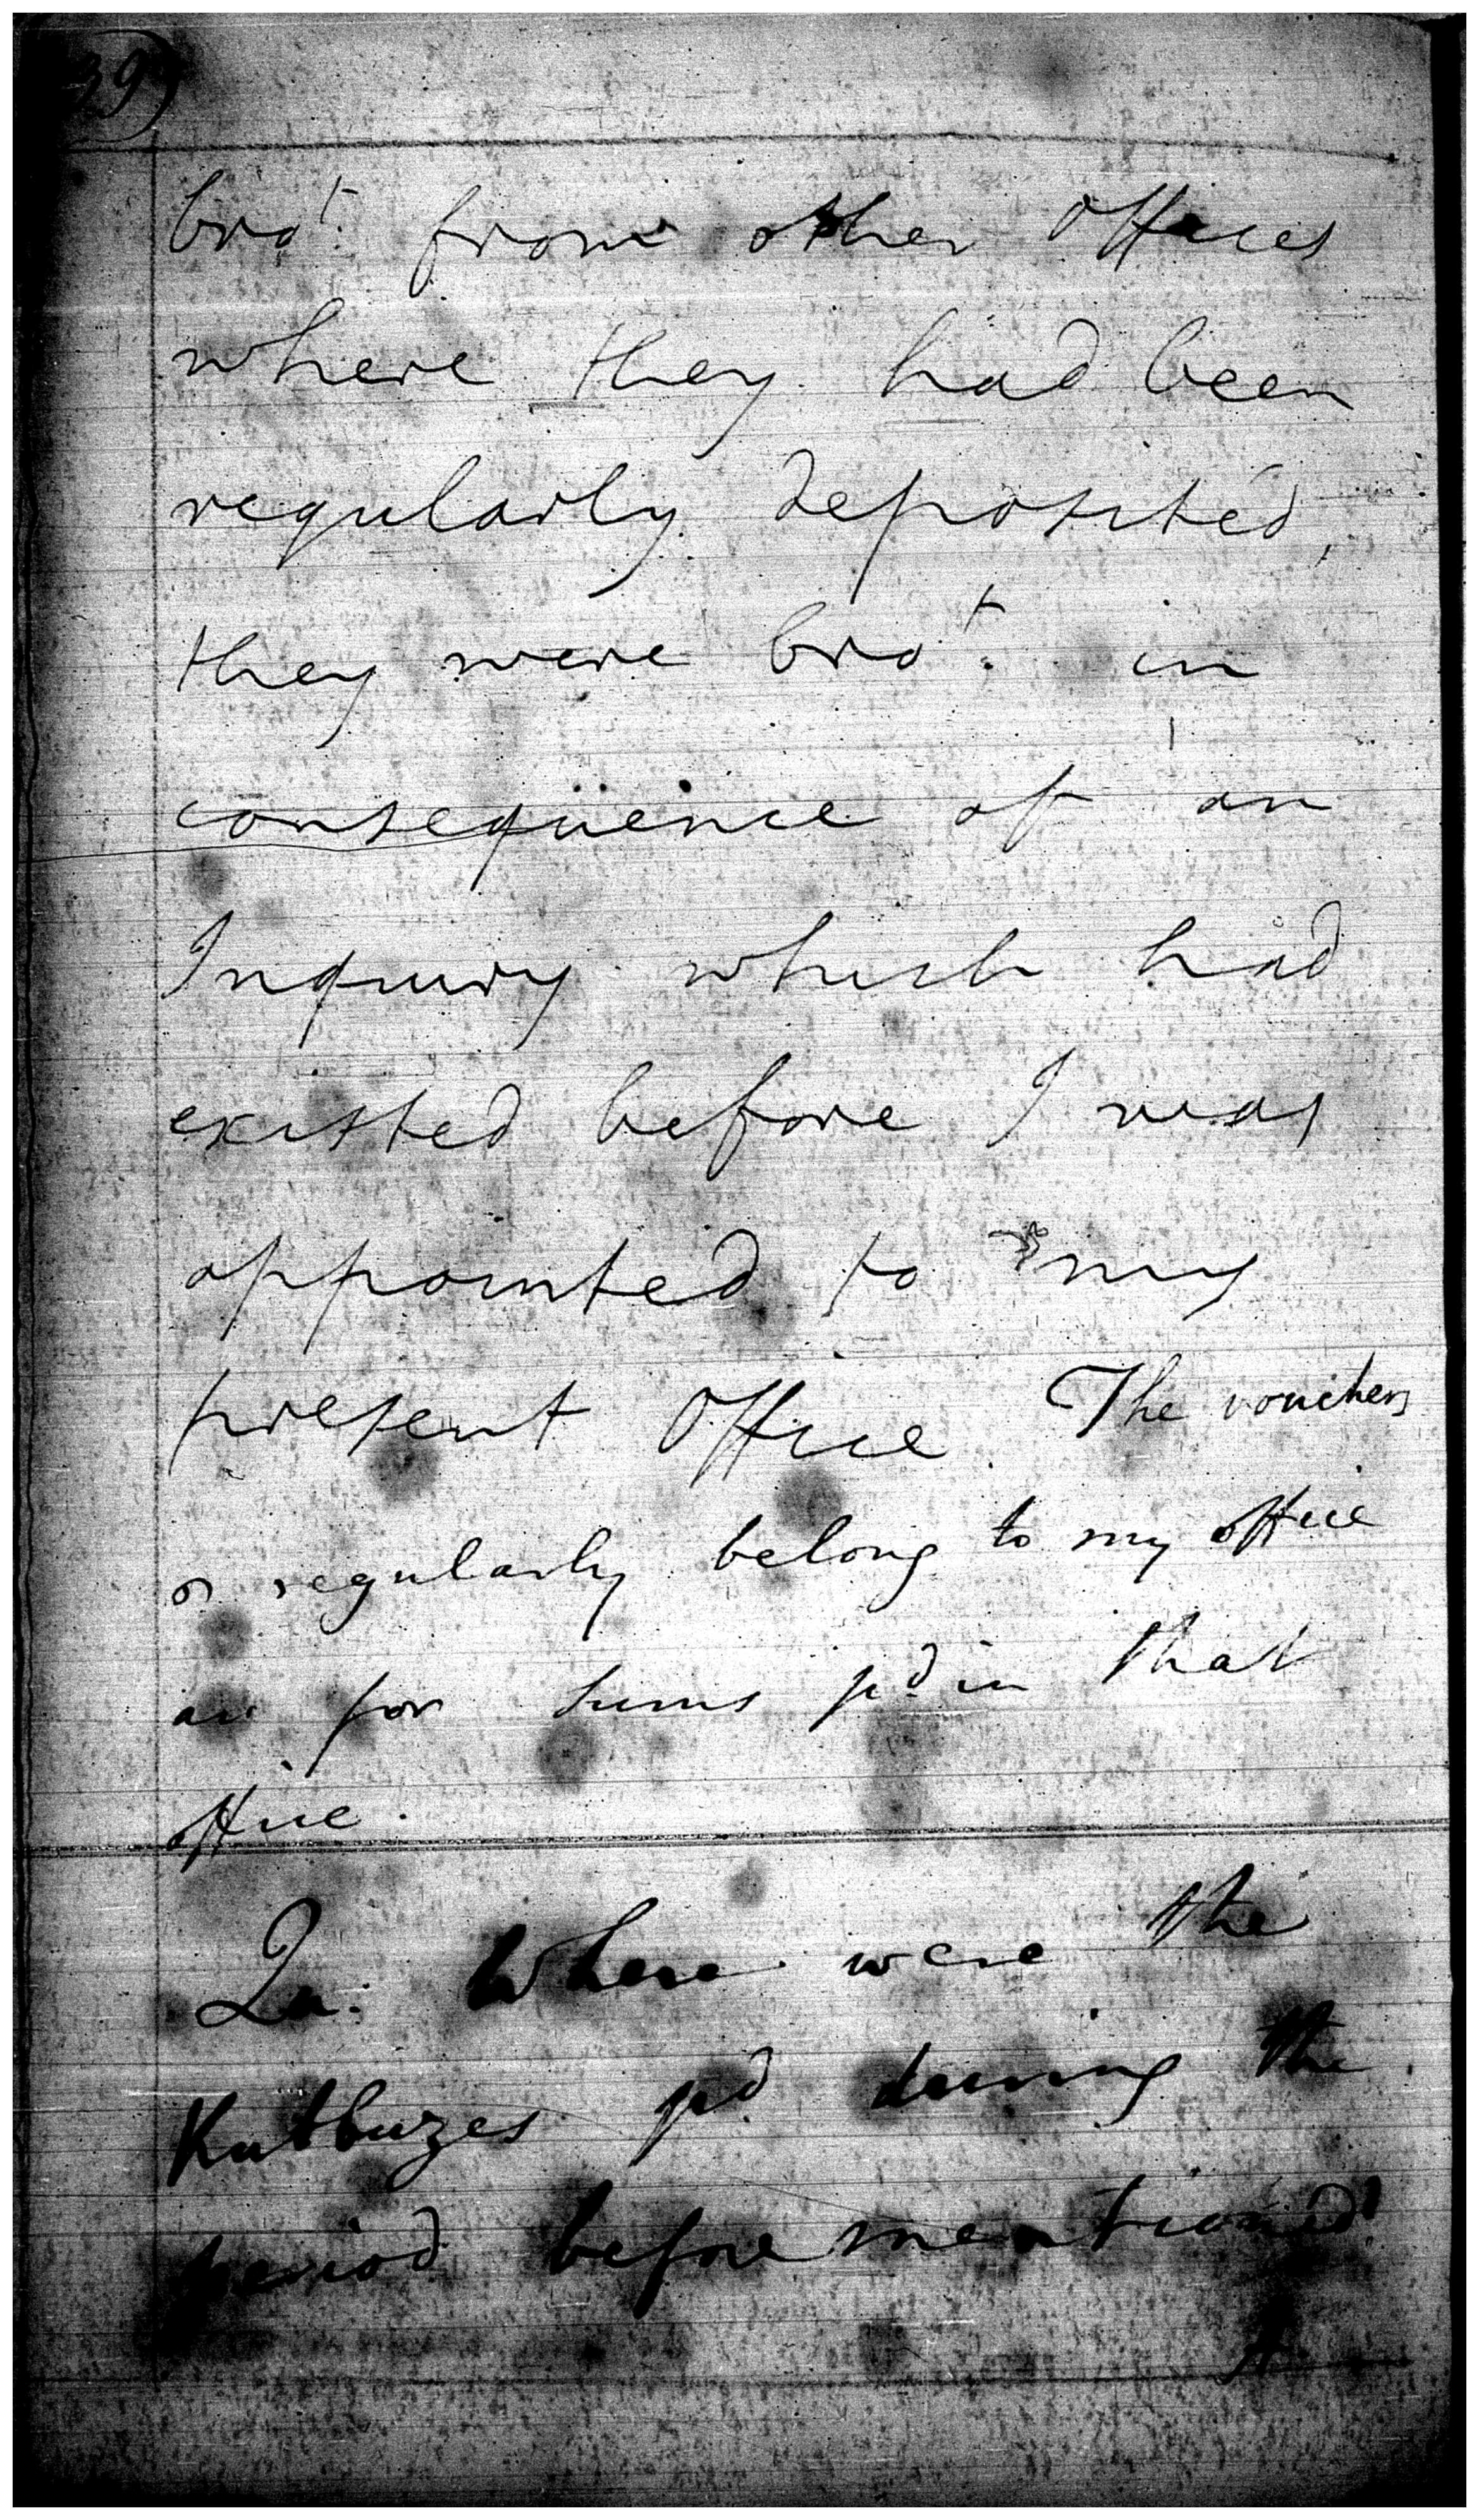 39)
bro.t from other Offices
where they had been
regularly deposited,
they were bro.t in
consequence of an
Inquiry which had
existed before I was
appointed to my
present Office. The vouchers
regularly belong to my office
are for sums pd in that
office.
Qu. Where were the
Kutbuzes pd during the
period before mentioned?
A